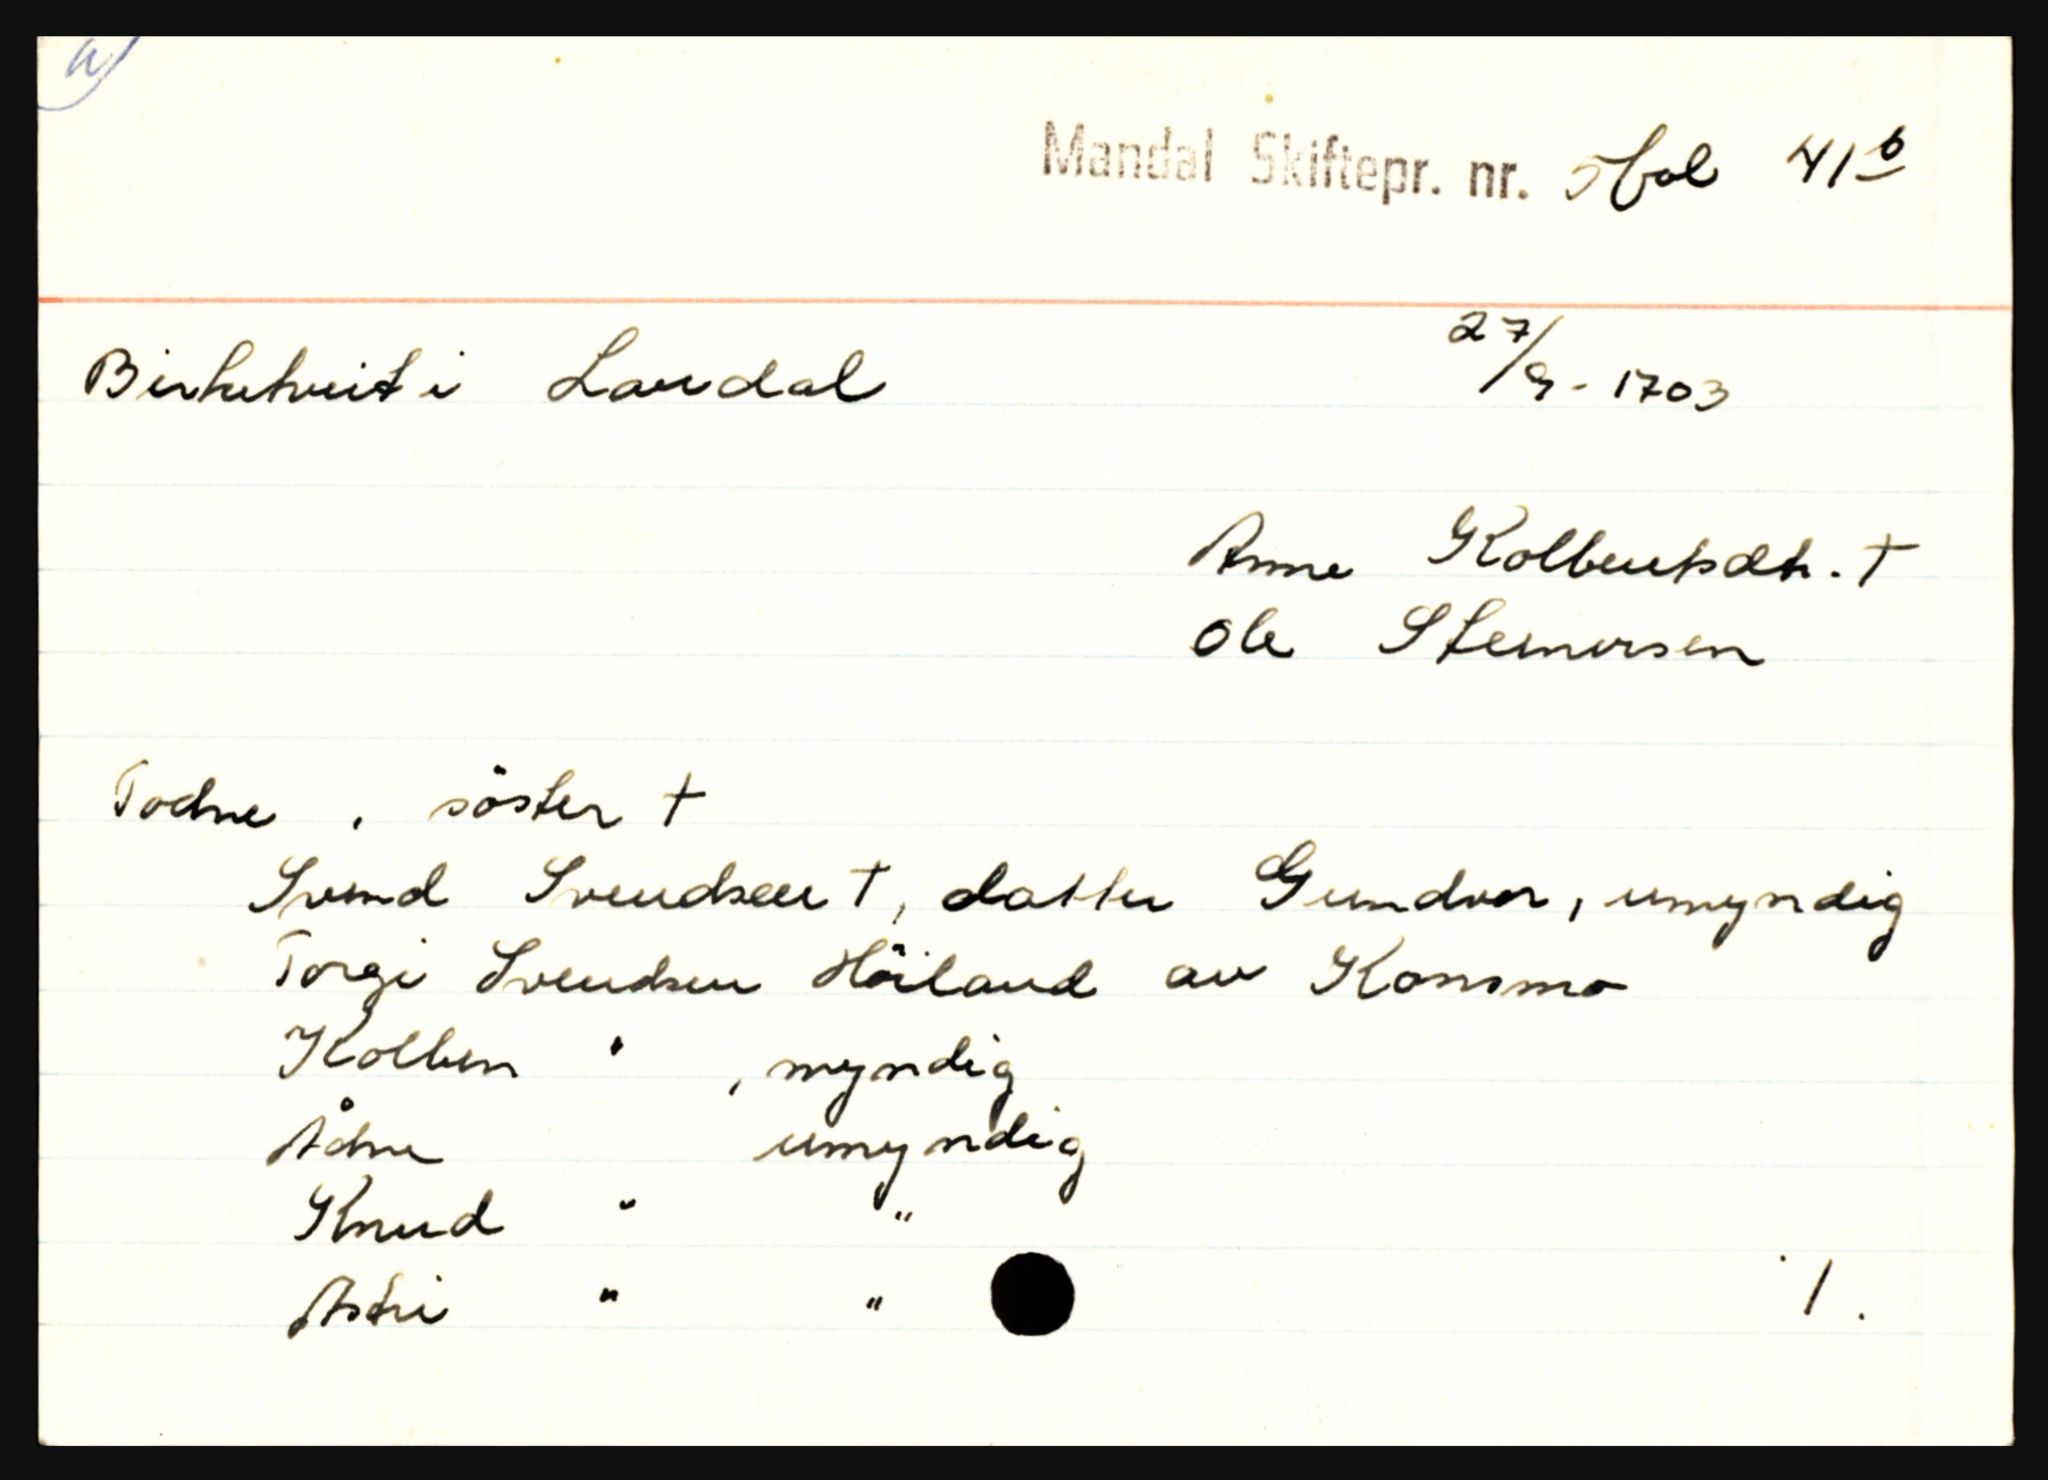 a)
Mandal Skiftepr. nr. 5 fol 41b
Birketveit i Laudal 27/9-1703
Anne Kolbentsdtr. †
Ole Steinersen
Todne , söster †
Svend Svendsen †, datter Gundvor, umyndig
Torgi Svendsen Höiland av Konsmo
Kolben " , myndig
Ådne umyndig
Knud " "
Astri " "
1.